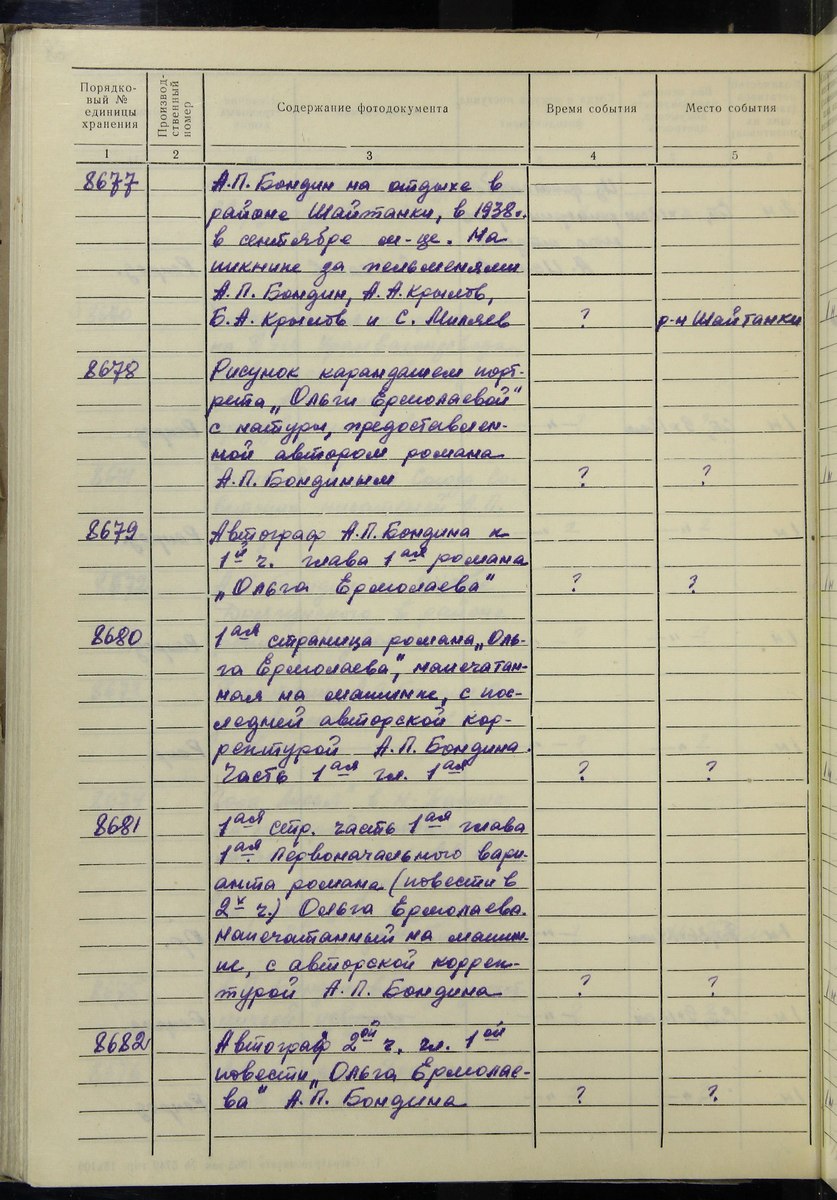 Порядко-
вый №
единицы
хранения
Производ-
ственный
номер
Содержание фотодокумента
Время события
Место события
1
2
3
4
5
8677
А.П. Бондин на отдыхе в
районе Шайтанки, в 1938г.
в сентябре м-це. На
пикнике за пельменями
А.П. Бондин, А.А. Крылов,
Б.А. Крылов и С. Миляев
?
р-н Шайтанки
8678
Рисунок карандашем порт-
рета „Ольги Ермолаевой"
с натуры, предоставлен-
ной автором романа
А.П. Бондиным
?
?
8679
Автограф А.П. Бондина к
1й ч. глава 1ая романа
„Ольга Ермолаева"
?
?
8680
1ая страница романа „Оль-
га Ермолаева", напечатан-
ная на машинке, с пос-
ледней авторской кор-
ректурой А.П. Бондина.
Часть 1ая гл. 1ая
?
?
8681
1ая стр. часть 1ая глава
1ая Первоначального вари-
анта романа (повести в
2х ч.) Ольга Ермолаева.
напечатанный на машин-
ке, с авторской коррек-
турой А.П. Бондина
?
?
8682
Автограф 2ой ч. гл. 1ой
повести „Ольга Ермолае-
ва" А.П. Бондина
?
?